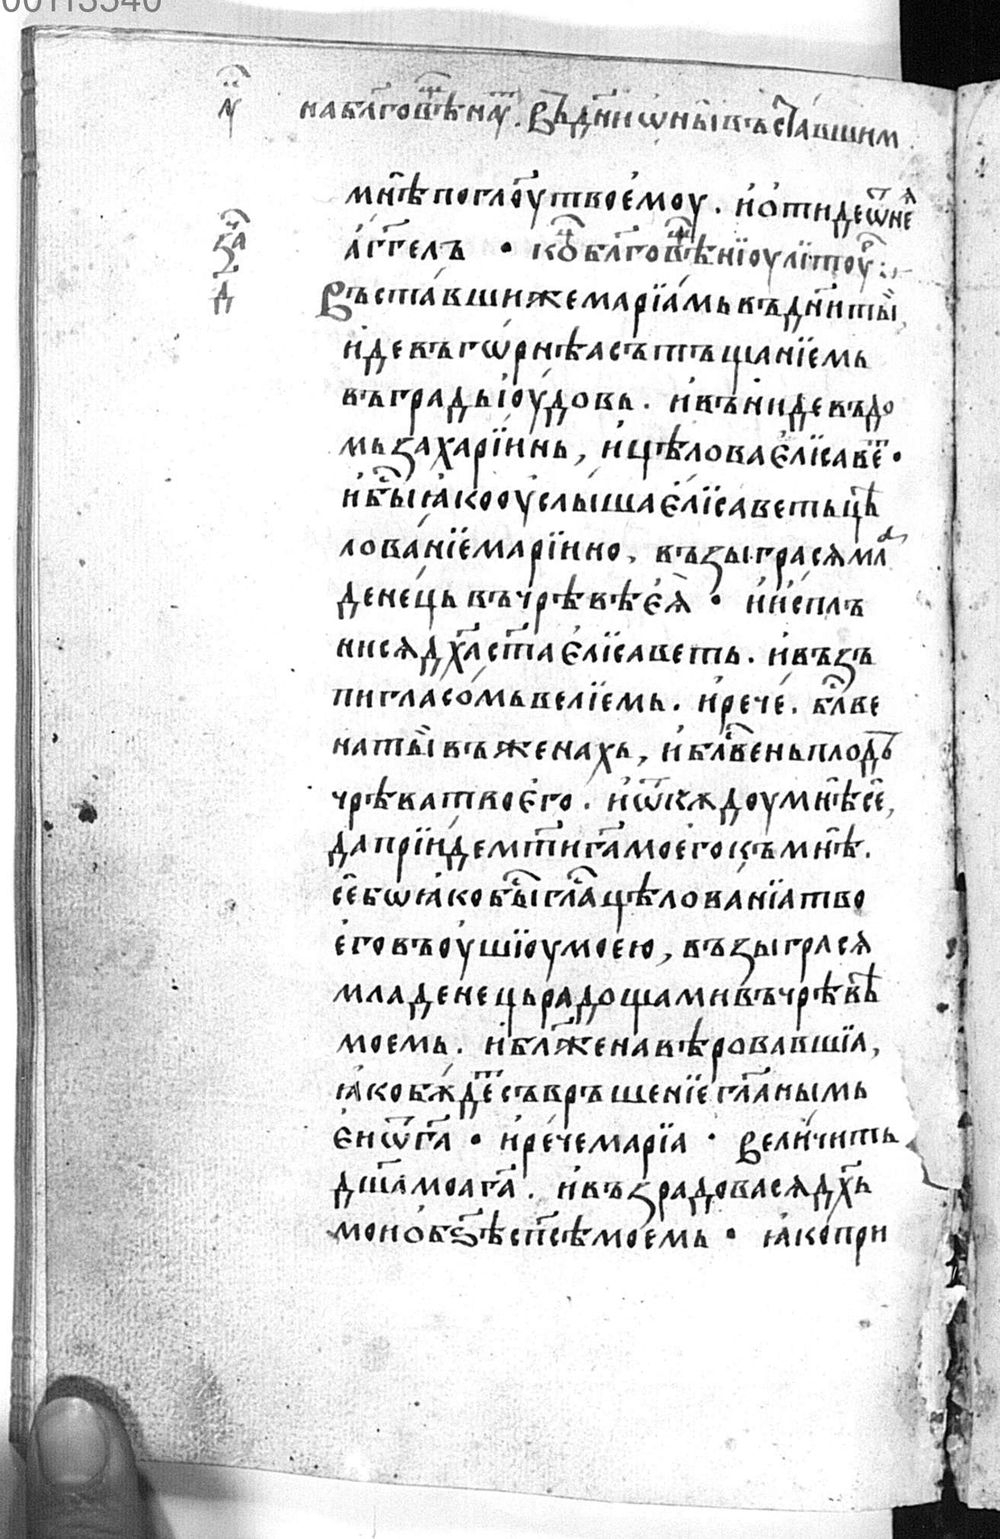 00113540
л҃у на бл҃говѣ́ нау҃. Въ дн҃и ѡ́ны въставшим
мн҃ѣ по гл҃оу твоемоу. и҆ ѿиде ѿ нея
за҃ а҆гг҃елъ • ко бл҃говѣнїоу лїтоу҃:
д҃ Въставши же марїа́мь въ дн҃и ты̀
и҆де въ гѡ́рнѣа съ тъщанїемь
въ градь і҆оу́довь. и҆ въни́де въ до
мь заха́рїинь, и҆ цѣлова є҆лїсавеⷮ •
и҆ бы́ ꙗ҆ко оу҆слыша є҆лїсаветь цѣ
лова́нїе марїино, въ́зыграся млⷣа
дене́ць въ чрѣвѣ є҆я̀ • и҆ и҆сплъ
нися дх҃а ст҃а є҆лїсаветь. и҆ въ́зъ
пи гласо́мь велїемь. и҆ рече́. бл҃ве
на ты̀ въ жена́хь, и҆ бл҃ве́нь плодь
чрѣва твоє҆го. и҆ ѿкѫдоу мн҃ѣ се҃,
да прїи́дем мт҃и га҃ моего къ мн҃ѣ.
се҃ бѡ ꙗ҆ко бы́ гла҃ цѣлова́нїа тво
е҆го въ оу҆шїоу моею, възыграся
младене́ць ра́дощами въ чрѣвѣ
моемь. и҆ бл҃жена вѣровавшїа,
ꙗ҆ко бѫдеⷮ съвръшенїе гл҃анымь
є҆и ѿ га҃ • и҆ рече марїа • Вели́чить
дш҃а моа га҃. и҆ възра́довася дх҃ь
мои ѡ҆ бз҃ѣ сп҃сѣ моемь • ꙗ҆ко при